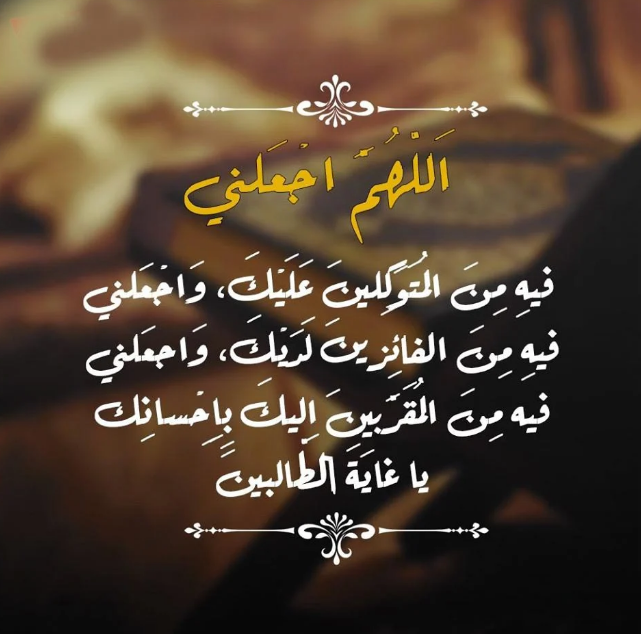 اَللّهُمَّ اجْعَلني
فيهِ مِنَ المُتَوَكِلينَ عَلَيْكَ، وَاجْعَلني
فيهِ مِنَ الفائِزينَ لَدَيْكَ، وَاجعَلني
فيه مِنَ المُقَرَّبينَ اِليكَ بِاِحْسانِكَ
يا غايَةَ الطّالبينَ